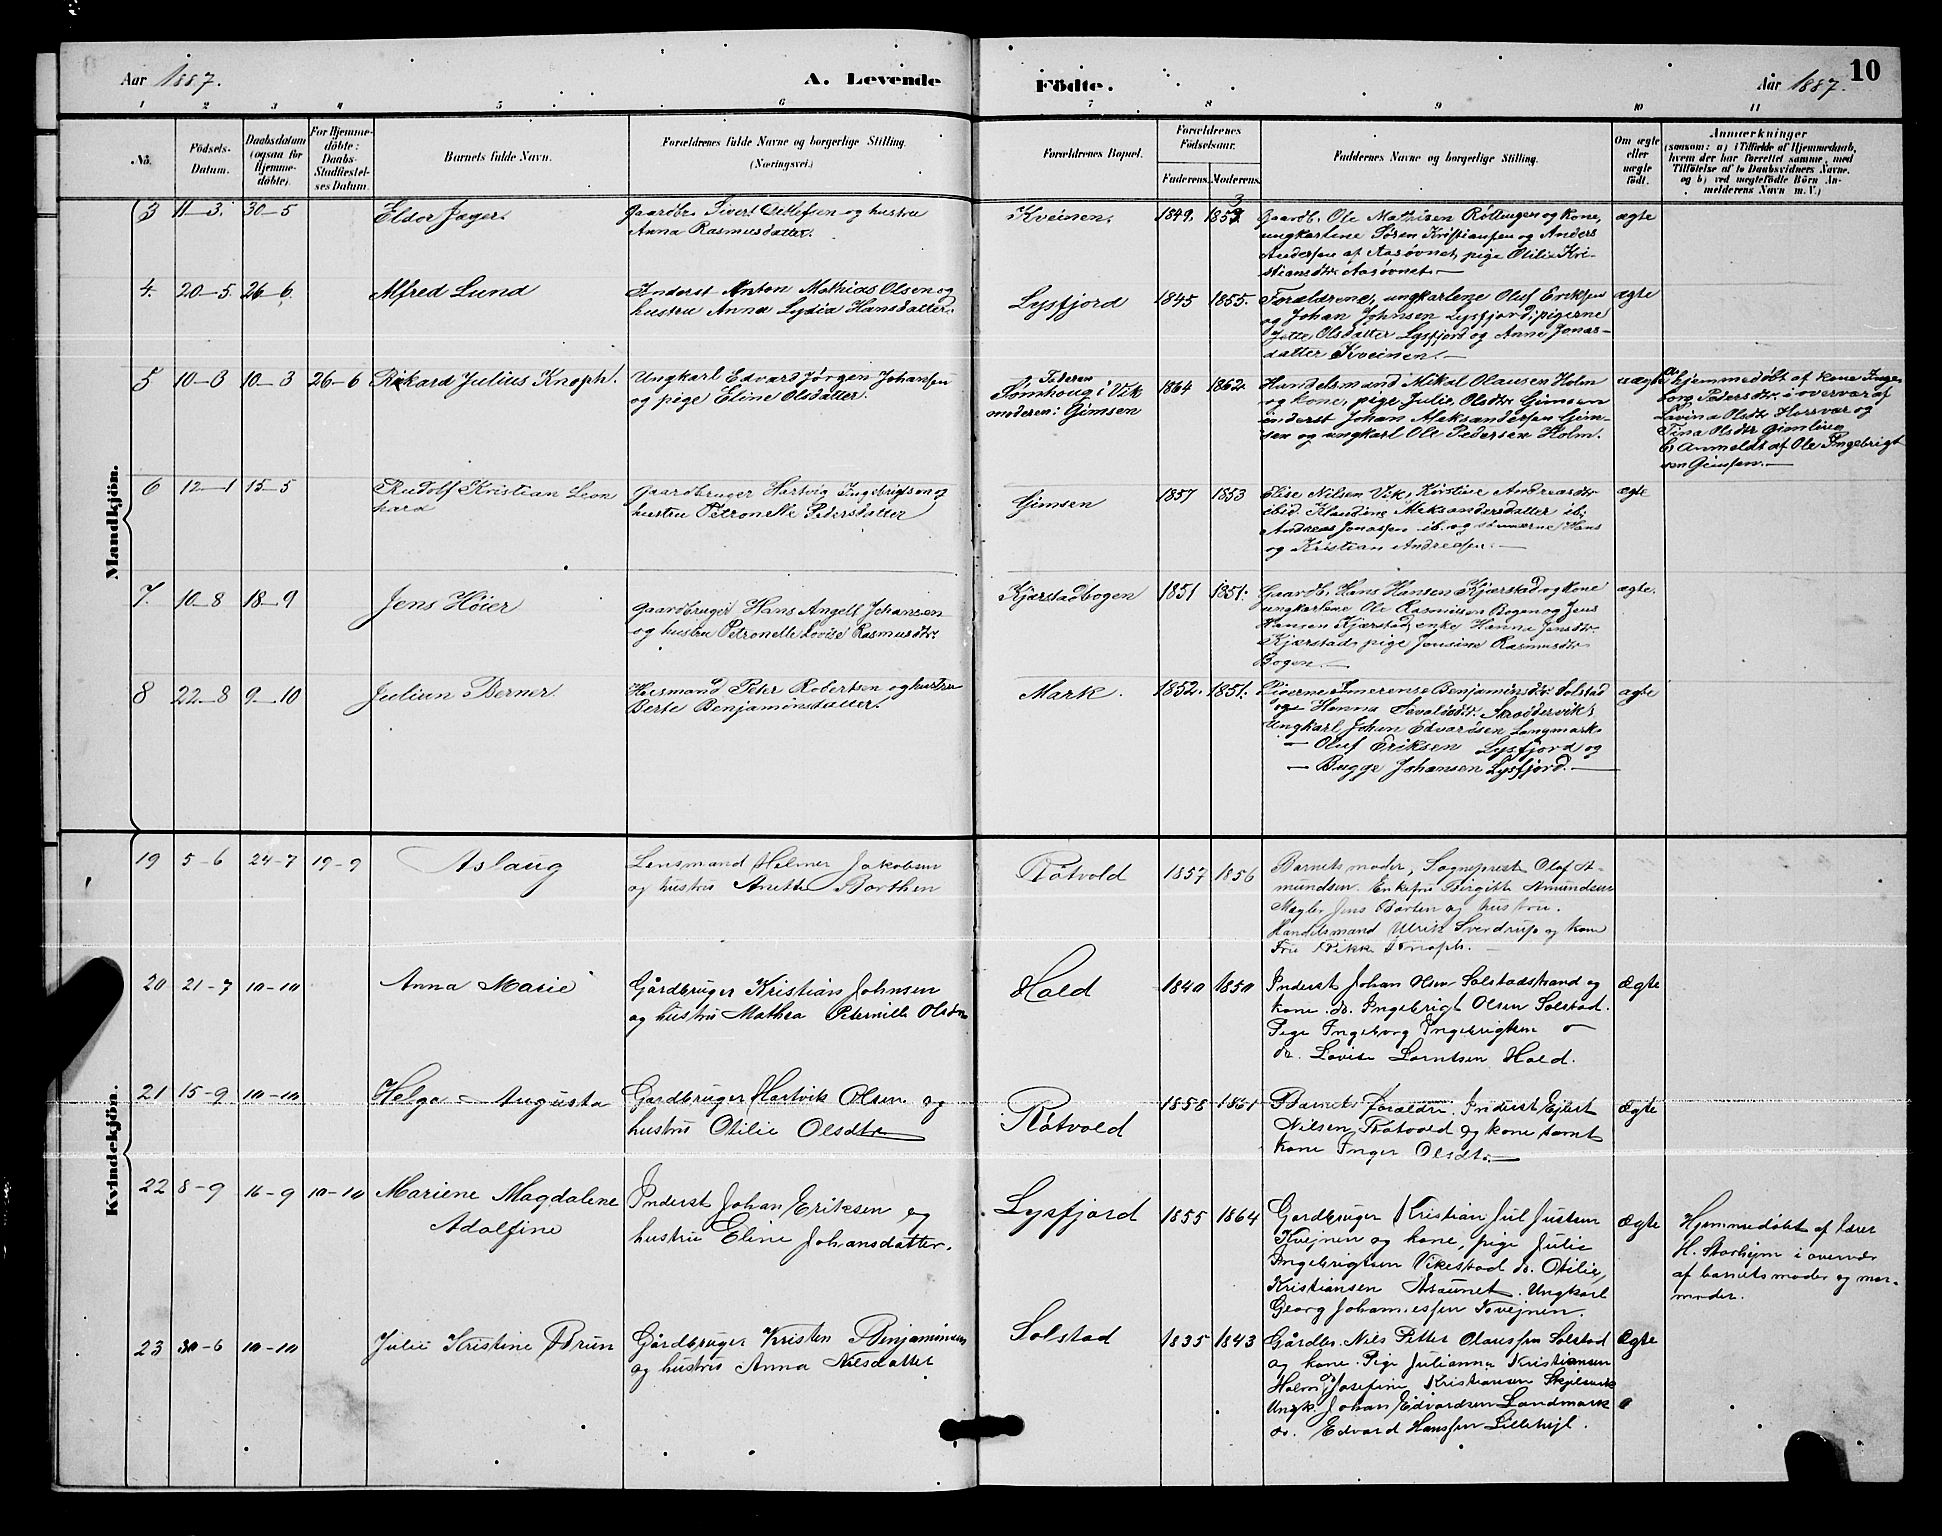 Aar 1887.
A. Levende
Födte.
Aar 1887.
10
1 2 3 4 5 6 7 8 9 10 11
No.
Födsels-
Datum.
Daabsdatum
(ogsaa for
Hjemme-
döbte).
For Hjemme-
döbte:
Daabs-
Stadfæstel-
ses Datum.
Barnets fulde Navn.
Forældrenes fulde Navne og borgerlige Stilling.
(Næringsvei.)
Forældrenes Bopæl.
Forældrenes
Födselsaar.
Faderens. Moderens.
Faddernes Navne og borgerlige Stilling.
Om ægte
eller
uægte
födt.
Anmærkninger
(saasom: a) i Tilfælde af Hjemmedaab,
hvem der har forrettet samme, med
Tilföielse af to Daabsvidners Navne,
og b) ved uægtefödte Börn An-
melderens Navn m. V.)
Mandkjön.
3 11-3. 30-5 Eldor Jæger.
Gaardbr. Sivert Detlefsen og hustru
Anna Rasmusdatter.
Kveinen. 1849. 1853
Gaardb. Ole Mathisen Röttingen og kone,
ungkarlene Sören Kristiansen og Anders
Andersen af Aasövnet, pige Otilie Kri-
stiansdtr Aasövnet.
ægte
4. 20-5. 26-6. Alfred Lund
Inderst Anton Mathias Olsen og
hustru Anna Lydia Hansdatter.
Lysfjord 1845 1855.
Forældrene, ungkarlene Oluf Eriksen
og Johan Johnsen Lysfjord, pigerne
Jette Olsdatter Lysfjord og Anne Jonas-
datter Kveinen.
ægte
5 10-3 10-3 26-6 Rikard Julius Knoph.
Ungkarl Edvard Jörgen Johansen
og pige Eline Olsdatter.
Faderen
Sömhoug i Vik
moderen: Gimsen
1864 1862.
Handelsmand Mikal Olausen Holm
og kone, pige Julie Olsdtr Gimsen
inderst Johan Aleksandersen Gim-
sen og ungkarl Ole Pedersen Holm.
uægte
hjemmedöbt af kone Inge-
borg Pedersdtr. i overvær af
Lavina Olsdtr Horsvær og
Tina Olsdtr Gimling
Anmeldt af Ole Ingebrigt
sen Gimsen.
6 12-1 15-5 Rudolf Kristian Leon
hard
Gaardbruger Hartvig Ingebrigtsen og
hustru Petronelle Pedersdatter
Gimsen 1857 1853
Elise Nilsen Vik, Kirstine Andreasdtr
ibid. Klaudine Aleksandersdatter ib.
Andreas Jonassen ib. og
og Kristian Andreasen.
ægte
7. 10-8 18-9 Jens Höier
Gaardbruger Hans Angell Johansen
og hustru Petronelle Lovise Rasmusdtr.
Kjærstadbogen 1851 1851.
Gaardb. Hans Hansen Kjærstad og kone
ungkarlene Ole Rasmusen Bogen og Jens
Hansen Kjærstad, enke Hanna Jensdtr.
Kjærstad, pige Jensine Rasmusdtr
Bogen.
ægte.
8 22-8 9-10 Julian Berner
Husmand Peter Robertsen og hustru
Berte Benjaminsdatter.
Mark. 1852. 1851.
Pigerne Imerense Benjaminsdtr. Solstad
og Hanna Sevaldsdtr.
Ungkarl Johan Edvardsen Langmark
— Oluf Eriksen Lysfjord og
— Bugge Johansen Lysfjord.
ægte
Kvindekjön.
19 5-6 24-7 19-9 Aslaug
Lensmand Helmer Jakobsen
og hustru Anette Borthen
Råtvold 1857 1856
Barnets moder, Sogneprest Olof A-
mundsen. Enkefru Birgitte Amundsen
Mægler Jens Borten og hustru.
Handelsmand Ulrik Sverdrup og kone
Fru Rikke Knoph.
20 21-7 10-10 Anna Marie
Gårdbruger Kristian Johnsen
og hustru Mathea Peternille Olsdtr
Hald 1840 1850
Inderst Johan Olsen Solstadstrand og
kone. do. Ingebrigt Olsen Solstad.
Pige Ingeborg Ingebrigtsen
do. Lovise Larntsen Hald.
Ægte
21 15-9 10-10 Helga Augusta
Gardbruger Hartvik Olsen og
hustru Otilie Olsdtr
Råtvold 1858 1861
Barnets Forældre. Inderst Ejlert
Nilsen Råtvold og kone samt
kone Inger Olsdtr.
Ægte
22 8-9 16-9 10-10 Mariene Magdalene
Adolfine
Inderst Johan Eriksen og
hustru Eline Johansdatter.
Lysfjord 1855 1864
Gardbruger Kristian Jul Justsen
Kvejnen og kone, pige Julie
Ingebrigtsen Vikestad do. Otilie
Kristiansen Asaunet. Ungkarl
Georg Johannessen Kvejnen.
Ægte
Hjemmedöbt af lærer
H. Storhejm i overvær
af barnets moder og mor-
moder.
23 30-6 10-10 Julie Kristine Brun
Gårdbruger Kristen Benjaminsen
og hustru Anna Nilsdatter
Solstad 1835 1843
Gårdbr. Nils Petter Olaussen Solstad
og kone. Pige Julianna Kristiansen
Holm, Josefine Kristiansen
Ungk. Johan Edvardsen Landmark
do. Edvard Hanssen Lillehejl.
Ægte